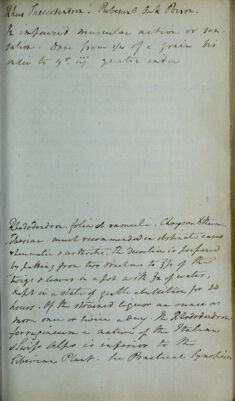 Rhus Toxicodendron. Pubescent Oak Poison.
In impaired muscular action or sen-
sation. Dose from 1/4 of a grain bis
in die to gr iij
Rhododendron. folia et ramuli. Chrysanthum.
Siberiae. much recommended in obstinate cases
rheumatic & arthritic. the decoction is prepared
by putting from two drachms to ʒiv of the
twigs & leaves in a pot with ℥x of water,
kept in a state of gentle ebullition for 24
hours. Of the strained liquor an ounce or
more once or twice a day. the Rhododendron
ferrugineum a native of the Italian
& Swiss Alps is inferior to the
Siberian Plant. In Practical Synopsis.